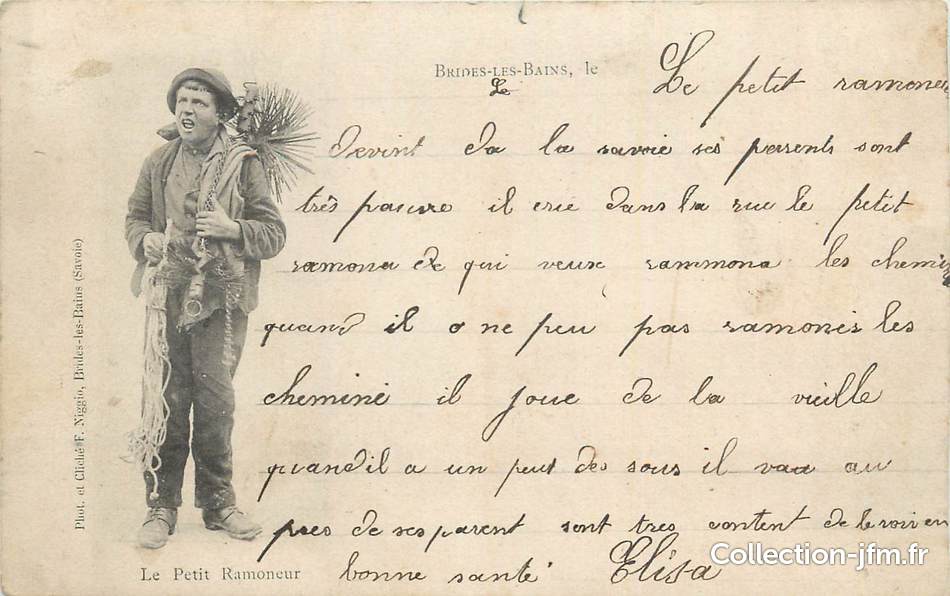 BRIDES-LES-BAINS, le
Le
Le petit ramoneu
devint da la savoie ses perrents sont
très pauvre il crie dans la rue le petit
ramona de qui veux rammona les chemin
quand il o ne peu pas ramonés les
cheminé il joue de la vielle
quand il a un peut des sous il vaa au
pres de ses parent sont tres content de le voir en
bonne santé Elisa
Le Petit Ramoneur
Phot. et Cliché F. Niggio, Brides-les-Bains (Savoie)
Collection-jfm.fr